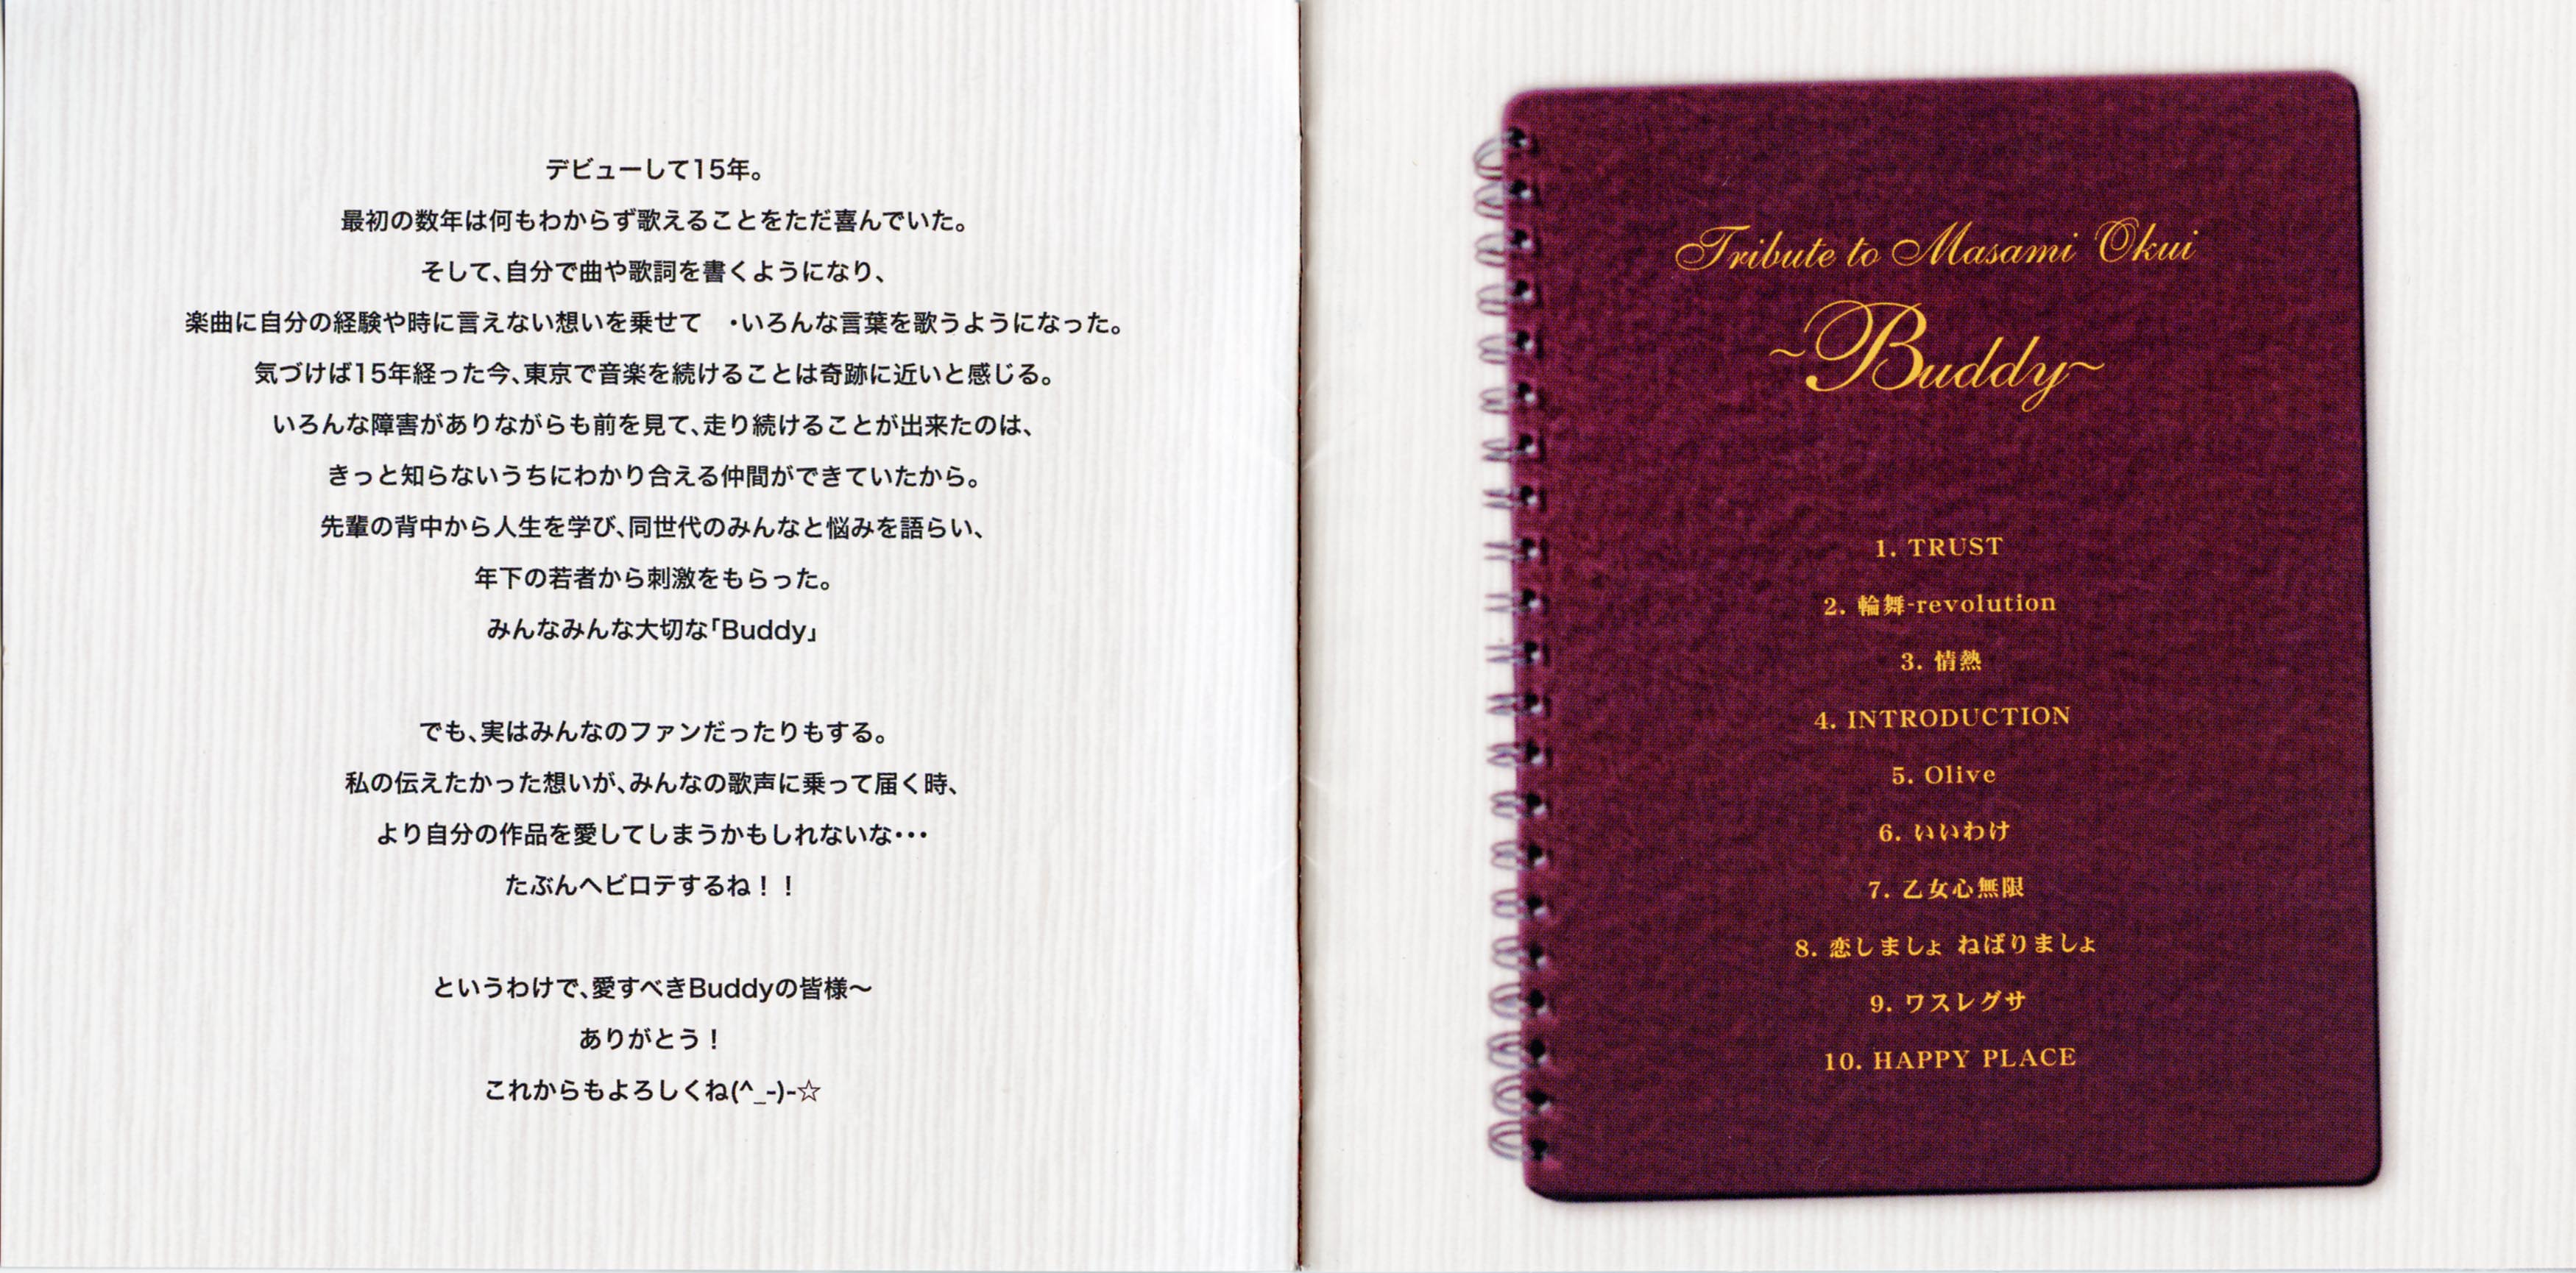 デビューして15年。
最初の数年は何もわからず歌えることをただ喜んでいた。
そして、自分で曲や歌詞を書くようになり、
楽曲に自分の経験や時に言えない想いを乗せて　・いろんな言葉を歌うようになった。
気づけば15年経った今、東京で音楽を続けることは奇跡に近いと感じる。
いろんな障害がありながらも前を見て、走り続けることが出来たのは、
きっと知らないうちにわかり合える仲間ができていたから。
先輩の背中から人生を学び、同世代のみんなと悩みを語らい、
年下の若者から刺激をもらった。
みんなみんな大切な「Buddy」
でも、実はみんなのファンだったりもする。
私の伝えたかった想いが、みんなの歌声に乗って届く時、
より自分の作品を愛してしまうかもしれないな・・・
たぶんヘビロテするね！！
というわけで、愛すべきBuddyの皆様〜
ありがとう！
これからもよろしくね(^_-)-☆
Tribute to Masami Okui
~Buddy~
1. TRUST
2. 輪舞-revolution
3. 情熱
4. INTRODUCTION
5. Olive
6. いいわけ
7. 乙女心無限
8. 恋しましょ ねばりましょ
9. ワスレグサ
10. HAPPY PLACE